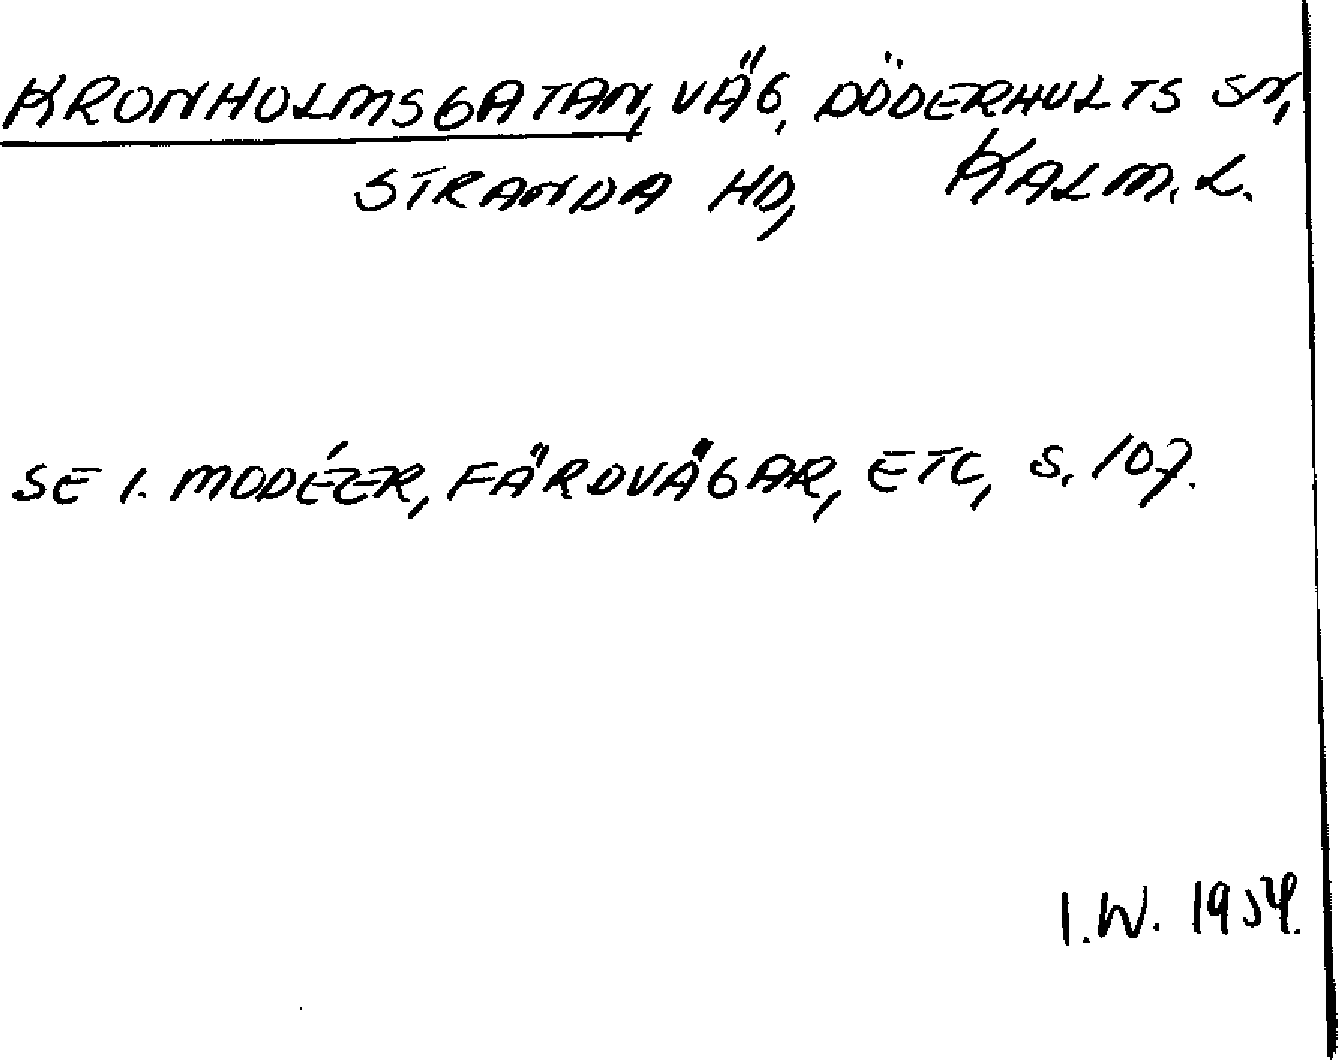 KRONHOLMSGATAN, VÄG, DÖDERHULTS SN,
STRANDA HD, KALM. L.
SE I. MODÉER, FÄRDVÄGAR, ETC, S. 107.
I.W. 1954.